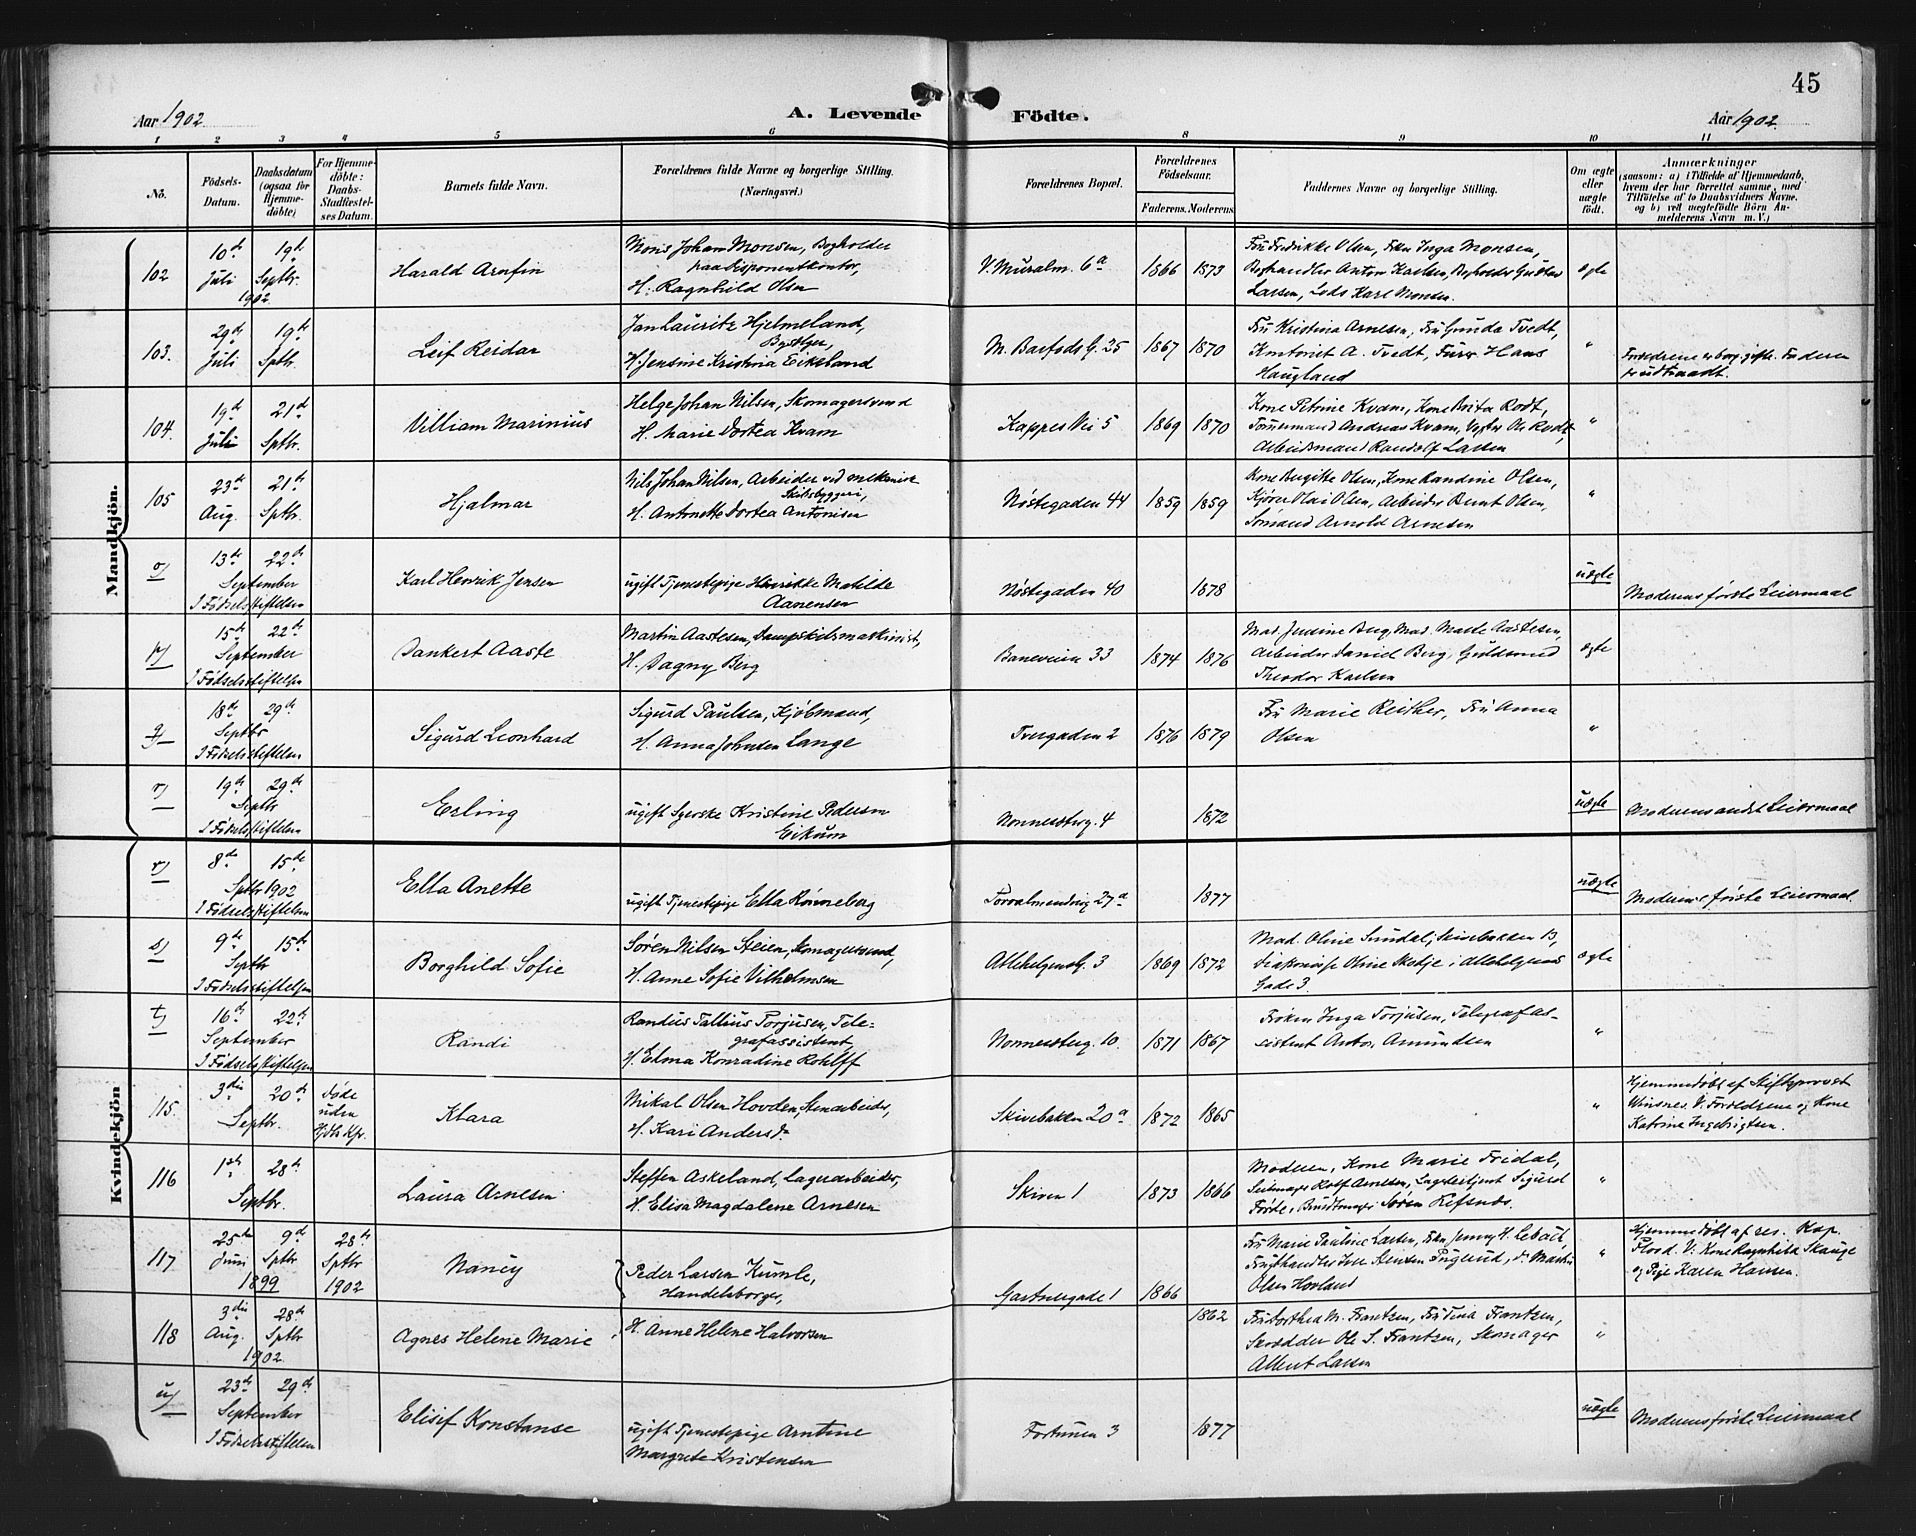 45
Aar 1902.
A. Levende Födte.
Aar 1902.
1 2 3 4 5 6 8 9 10 11
No.
Födsels-Datum.
Daabsdatum (ogsaa for Hjemmedöbte)
For Hjemmedöbte: Daabs-Stadfæstelses Datum.
Barnets fulde Navn.
Forældrenes fulde Navne og borgerlige Stilling. (Næringsvei.)
Forældrenes Bopæl.
Forældrenes Födselsaar.
Faderens. Moderens
Faddernes Navne og borgerlige Stilling.
Om ægte eller uægte födt.
Anmærkninger
(saasom: a) i Tilfælde af Hjemmedaab,
hvem der har forrettet samme, med
Tilföielse af to Daabsvidners Navne,
og b) ved uægtefödte Börn Anmelderens Navn m. V.)
Mandkjön.
102
10de Juli
19de Septbr. 1902
Harald Arnfin
Mons Johan Monsen, Bogholder
paa Disponentkontor,
H. Ragnhild Olsen
V. Muralm. 6a
1866 1873
Fru Fredrikke Olsen, Frkn Inga Monsen,
Boghandler Anton Karlsen, Bogholder Gustav
Larsen, Lods Karl Monsen.
ægte
103.
29de Juli
19de Sptbr.
Leif Reidar
Jan Lauritz Hjelmeland,
H. Jensine Kristina Eikeland
M. Barfods G. 25
1867 1870
Fru Kristina Arnesen, Fru Gunda Tvedt,
Kontorist A. Tvedt, Furer Hans
Haugland
"
Forældrene er borg. gifte. Faderen
er udtraadt.
104.
19de Juli
21de Sptbr.
Villiam Marinius
Helge Johan Nilsen, Skomagersvend
H. Marie Dortea Kvam
Kappes Vei 5
1869 1870
Kone Petrine Kvam, Kone Brita Rodt,
Tømmermand Andreas Kvam, Vegter Ole Rodt,
Arbeidsmand Randolf Larsen
"
105
23de Aug.
21de Sptbr.
Hjalmar
Nils Johan Nilsen, Arbeider ved mekanisk
Skibsbyggeri,
H. Antonette Dortea Antonisen
Nøstegaden 44
1859 1859
Kone Birgitte Olsen, Kone Randine Olsen,
Kjører Olai Olsen, Arbeider Bernt Olsen,
Sømand Arnold Arnesen
"
o)
13de 22de
September
I Fødselsstiftelsen
Karl Henrik Jensen
ugift Tjenestepige Henrikke Matilde
Aanensen
Nøstegaden 40
1878
uægte
Moderens første Leiermaal
p)
15de 22de
September
I Fødselsstiftelsen
Dankert Aaste
Martin Aastesen, Dampskibsmaskinist,
H. Dagny Berg
Baneveien 33
1874 1876
Mad. Jensine Berg, Mad. Marte Aastesen,
Arbeider Daniel Berg, Guldsmed
Theodor Karlsen
ægte
q)
18de 29de
Septbr
I Fødselsstiftelsen
Sigurd Leonhard
Sigurd Paulsen, Kjøbmand,
H. Anna Johnsen Lange
Tvergaden 2
1876 1879
Fru Marie Reither, Fru Anna
Olsen
"
r)
19de 29de
Septbr
I Fødselsstiftelsen
Erling
ugift Syerske Kristine Pedersen
Eikum
Nonnesterg. 4
1872
uægte
Moderens andet Leiermaal
Kvindekjön
r)
8de 15de
Sptbr 1902
I Fødselsstiftelsen
Ella Anette
ugift Tjenestepige Ella Rønneberg
Torvalmending 27a
1877
uægte
Moderens første Leiermaal.
s)
9de 15de
Septbr
I Fødselsstiftelsen
Borghild Sofie
Søren Nilsen Steien, Skomagersvend,
H. Anne Sofie Vilhelmsen
Allehelgensg. 3
1869 1872
Mad. Oline Sundal, Skivebakken 13,
Diakonisse Oline Skedje i Allehelgens
Gade 3.
ægte
t)
16de 22de
September
I Fødselsstiftelsen
Randi
Randus Tallius Torjusen, Tele-
grafassistent,
H. Elma Konradine Rohlff
Nonnesterg. 10.
1871 1867
Frøken Inga Torjusen, Telegrafas-
sistent Anton Amundsen
"
115
3die 20de
Septbr.
Døde uden
Klara
Mikal Olsen Hovden, Stenarbeider,
H. Kari Andersdr
Skivebakken 20a
1872 1865
"
Hjemmedøbt af Stiftsprovst
Winsnes. V: Forældrene og Kone
Katrine Ingebrigtsen.
116
1ste 28de
Septbr.
Laura Arnesen
Steffen Askeland, Lagerarbeider,
H. Elisa Magdalene Arnesen
Skiven 1
1873 1866
Moderen, Kone Marie Fridal,
Seilmager Rolf Arnesen, Sigurd
Førde, Bundtmager Søren Refsnes.
"
117
25de Juni
9de Sptbr
1899
28de Sptbr 1902
Nancy
Peder Larsen Kumle,
Handelsborger,
Gartnergade 1
1866
Fru Marie Pauline Larsen, Frkn Jenny H. Lebach,
Frugthandler Iver Stensen Fuglerud, do Martin
Olsen Hovland
"
Hjemmedøbt af res. Kap.
Flood. V: Kone Ragnhild Skauge
og Pige Karen Hansen.
118
3die Aug.
28de Sptbr
1902.
Agnes Helene Marie
H. Anne Helene Halvorsen
1862
Fru Dorthea M. Frantzen, Fru Tina Frantzen,
Skrædder Ole S. Frantzen, Skomager
Albert Larsen
"
u)
23de 29de
September
I Fødselsstiftelsen
Elisif Konstanse
ugift Tjenestepige Arntine
Margrete Kristensen
Fortunen 3
1877
uægte
Moderens første Leiermaal